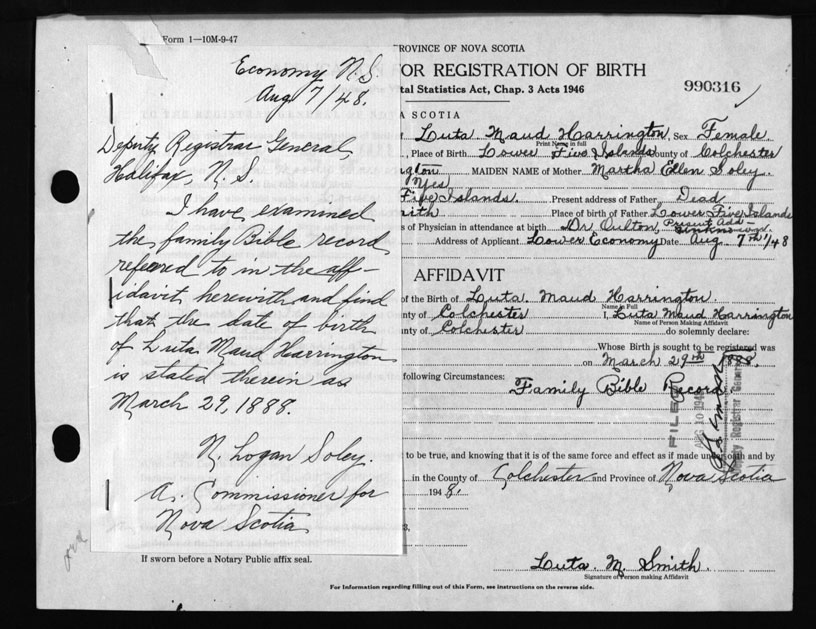 Form 1—10M-9-47
Economy N.S.
Aug 7/48.
Deputy Registrar General,
Halifax, N.S.
I have examined
the family Bible record
refered to in the aff-
idavit herewith and find
that the date of birth
of Luta Maud Harrington
is stated therein as
March 29, 1888.
N. Logan Soley.
A. Commissioner for
Nova Scotia
If sworn before a Notary Public affix seal.
ROVINCE OF NOVA SCOTIA
FOR REGISTRATION OF BIRTH
990316
tal Statistics Act, Chap. 3 Acts 1946
A SCOTIA
Luta Maud Harrington Sex Female
Print Name in full
, Place of Birth Lower Five Islands County of Colchester
ngton MAIDEN NAME of Mother Martha Ellen Soley.
Yes
Five Islands. Present address of Father Dead
mith Place of birth of Father Lower Five Islands
s of Physician in attendance at birth Dr Present Add-
Address of Applicant Lower Economy Date Aug. 7th/48
AFFIDAVIT
of the Birth of Luta. Maud Harrington.
Name in Full
nty of Colchester I, Luta Maud Harrington
Name of Person Making Affidavit
unty of Colchester do solemnly declare:
Whose Birth is sought to be registered was
on March 29th 1888.
following Circumstances: Family Bible Record.
FILED
AUG 10 194
Registrar General
to be true, and knowing that it is of the same force and effect as if made under oath and by
in the County of Colchester and Province of Nova Scotia
1948.
Luta. M. Smith.
Signature of Person making Affidavit
For Information regarding filling out of this Form, see instructions on the reverse side.